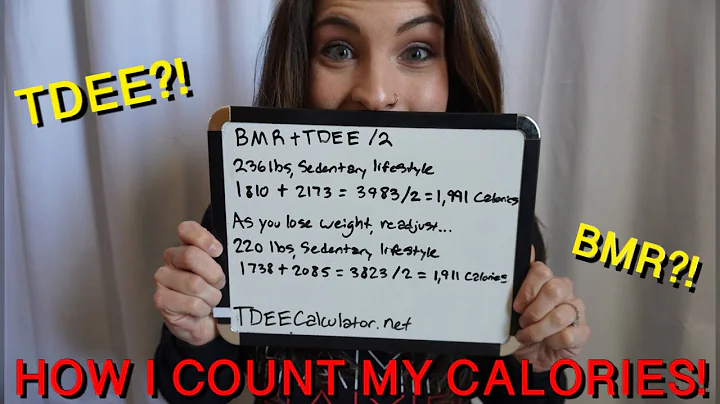 TDEE?!
BMR+TDEE/2
236lbs, Sedentary lifestyle
1810 + 2173 = 3983/2 = 1,991 Calories
As you lose weight, readjust...
220 lbs, Sedentary lifestyle
1738 + 2085 = 3823/2 = 1,911 Calories
TDEECalculator.net
BMR?!
HOW I COUNT MY CALORIES!